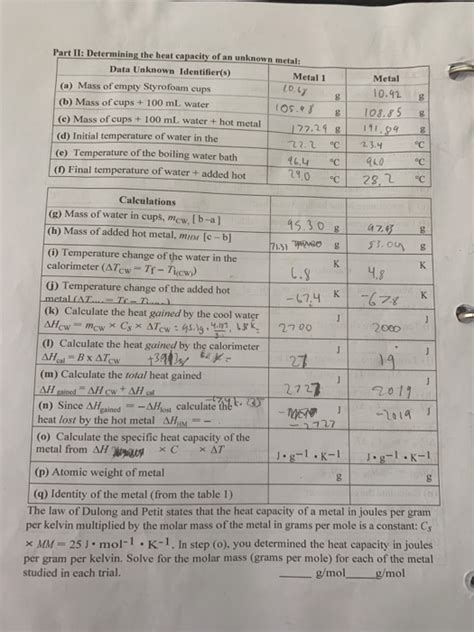 Part II: Determining the heat capacity of an unknown metal:
Data Unknown Identifier(s) Metal 1 Metal
(a) Mass of empty Styrofoam cups 10.68 g 10.92 g
(b) Mass of cups + 100 mL water 105.98 g 108.85 g
(c) Mass of cups + 100 mL water + hot metal 177.29 g 191.89 g
(d) Initial temperature of water in the 22.2 °C 23.4 °C
(e) Temperature of the boiling water bath 96.4 °C 96.0 °C
(f) Final temperature of water + added hot 29.0 °C 28.2 °C
Calculations
(g) Mass of water in cups, mCW, [ b –a ] 95.30 g 97.93 g
(h) Mass of added hot metal, mHM [c – b] 71.31 g 83.04 g
(i) Temperature change of the water in the
calorimeter (ΔTCW = Tf – Ti(CW)) 6.8 K 4.8 K
(j) Temperature change of the added hot
metal –67.4 K –67.8 K
(k) Calculate the heat gained by the cool water
ΔHCW = mCW × Cs × ΔTCW 2700 J 2000 J
(l) Calculate the heat gained by the calorimeter
ΔHcal = B x ΔTCW 27 J 19 J
(m) Calculate the total heat gained
ΔH gained = ΔH CW + ΔH cal 2727 J 2019 J
(n) Since ΔHgained = –ΔHlost calculate the
heat lost by the hot metal ΔHHM = –2727 J –2019 J
(o) Calculate the specific heat capacity of the
metal from ΔH × C × ΔT J•g–1•K–1 J•g–1•K–1
(p) Atomic weight of metal g g
(q) Identity of the metal (from the table 1)
The law of Dulong and Petit states that the heat capacity of a metal in joules per gram
per kelvin multiplied by the molar mass of the metal in grams per mole is a constant: Cs
× MM = 25 J• mol–1 • K–1. In step (o), you determined the heat capacity in joules
per gram per kelvin. Solve for the molar mass (grams per mole) for each of the metal
studied in each trial. _____ g/mol_____g/mol